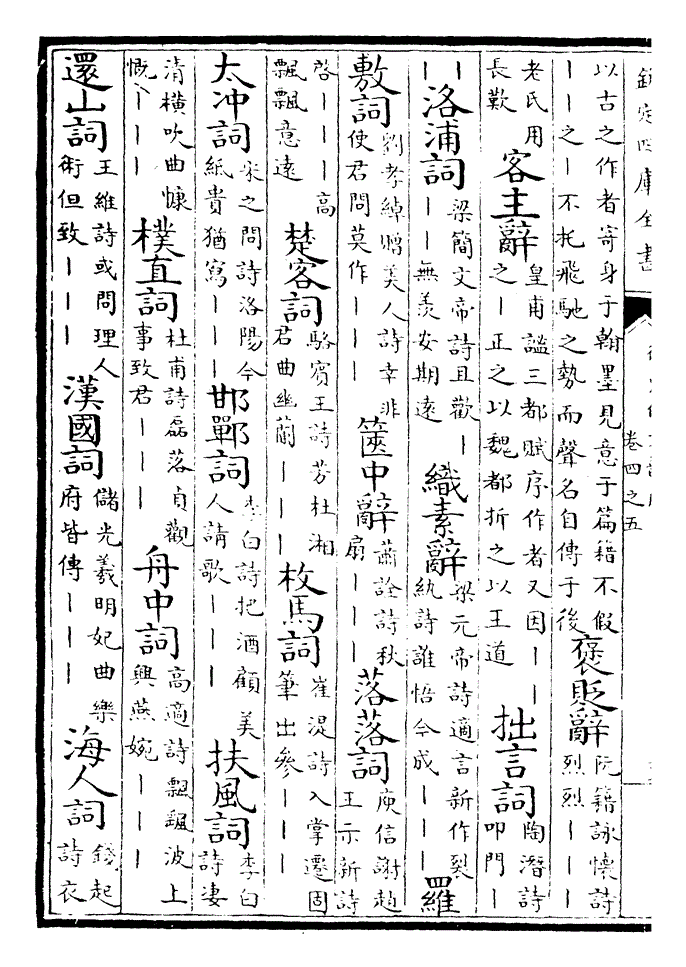 欽定四庫全書 卷四之五
以古之作者寄身于翰墨見意于篇籍不假丨丨之丨不托飛馳之勢而聲名自傳于後 褒貶辭 阮籍詠懷詩烈烈丨丨丨
老氏用長歎 客主辭 皇甫謐三都賦序作者又因丨丨之丨正之以魏都折之以王道 拙言詞 陶潛詩叩門丨
丨丨 洛浦詞 梁簡文帝詩且歡丨丨丨無羨安期遠 織素辭 梁元帝詩適言新作裂紈詩誰悟今成丨丨丨 羅
敷詞 劉孝綽贈美人詩幸非使君問莫作丨丨丨 篋中辭 蕭詮詩秋扇丨丨丨 落落詞 庾信謝趙王示新詩
啓丨丨丨高飄飄意遠 楚客詞 駱賓王詩芳杜湘君曲幽蘭丨丨丨 枚馬詞 崔湜詩入掌遷固筆出參丨丨丨
太冲詞 宋之問詩洛陽今紙貴猶寫丨丨丨 邯鄲詞 李白詩把酒顧美人請歌丨丨丨 扶風詞 李白詩淒
清橫吹曲慷慨丨丨丨 樸直詞 杜甫詩磊落貞觀事致君丨丨丨 舟中詞 高適詩飄颻波上興燕婉丨丨丨
還山詞 王維詩或問理人術但致丨丨丨 漢國詞 儲光羲明妃曲樂府皆傳丨丨丨 海人詞 錢起詩衣